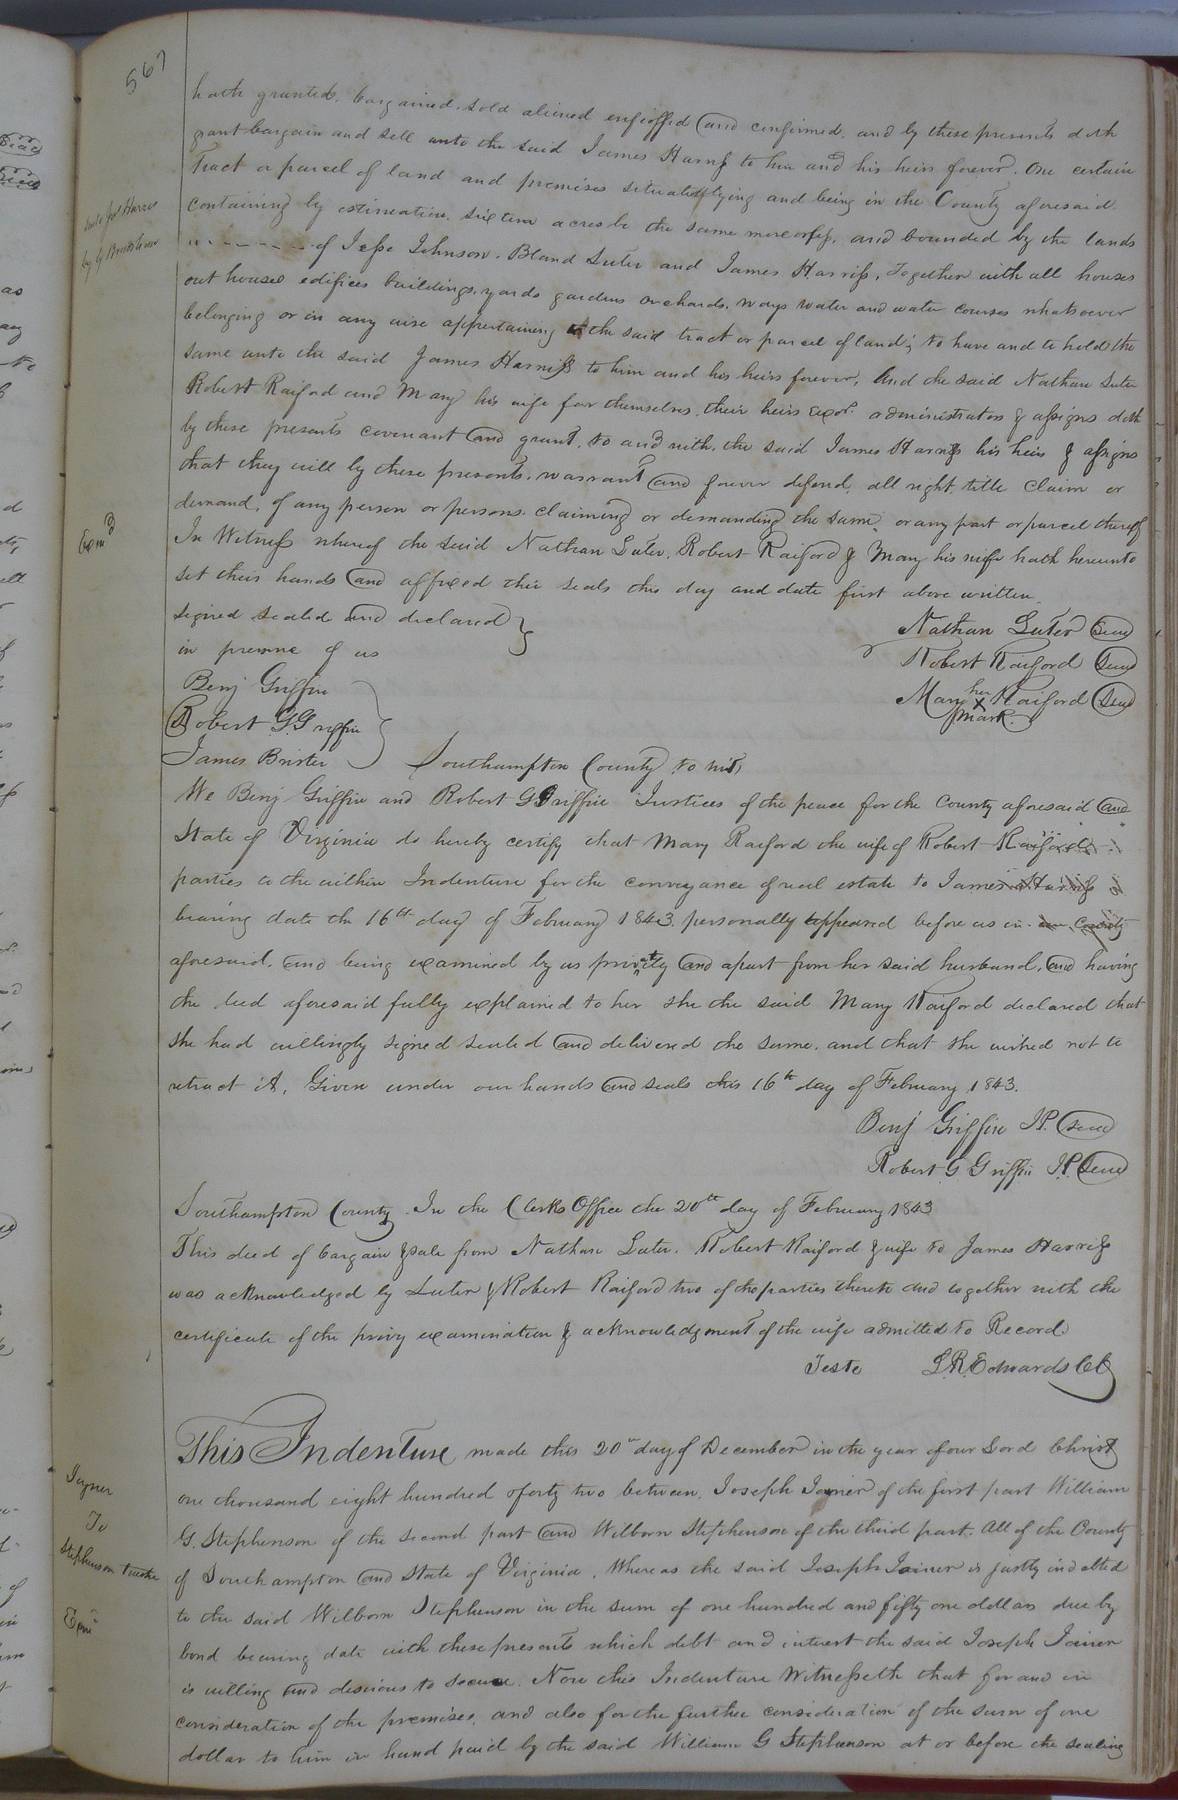 567
hath granted, bargained, sold aliened enfeoffed and confirmed, and by these presents doth
grant bargain and sell unto the said James Harriss to him and his heirs forever. One certain
Tract or parcel of land and premises situated lying and being in the County aforesaid
containing by estimation, sixteen acres be the same more or less, and bounded by the lands
" - - - - - - - of Jesse Johnson, Bland Luter and James Harriss, Together with all houses
out houses edifices buildings, yards gardens orchards, ways water and water courses whatsoever
belonging or in any wise appertaining to the said tract or parcel of land; to have and to hold the
same unto the said James Harriss to him and his heirs forever, And the said Nathan Luter
Robert Raiford and Mary his wife for themselves, their heirs exors. administrators & assigns doth
by these presents covenant and grant, to and with, the said James Harriss his heirs & assigns
that they will by these presents, warrant and forever defend, all right title claim or
demand, of any person or persons claiming or demanding the same, or any part or parcel thereof
In Witness whereof the said Nathan Luter, Robert Raiford & Mary his wife hath hereunto
set their hands and affixed their seals this day and date first above written.
signed sealed and declared }
in presence of us
Nathan Luter Seal
Robert Raiford Seal
Mary her X mark Raiford Seal
Benj Griffin
Robert G. Griffin
James Brister
Southampton County to wit,
We Benj Griffin and Robert G Griffin Justices of the peace for the County aforesaid and
State of Virginia do hereby certify that Mary Raiford the wife of Robert Raiford
parties to the within Indenture for the conveyance of real estate to James Harriss
bearing date the 16th day of February 1843 personally appeared before us in our County
aforesaid, and being examined by us privately and apart from her said husband, and having
the deed aforesaid fully explained to her she the said Mary Raiford declared that
she had willingly signed sealed and delivered the same, and that she wished not to
retract it, Given under our hands and seals this 16th day of February 1843.
Benj Griffin J.P. Seal
Robert G Griffin J.P. Seal
Southampton County. In the Clerks Office the 20th day of February 1843
This deed of bargain & sale from Nathan Luter, Robert Raiford & wife to James Harriss
was acknowledged by Luter & Robert Raiford two of the parties thereto and together with the
certificate of the privy examination & acknowledgment of the wife admitted to Record
Teste L.R. Edwards Clk
Joyner
To
Stephenson trustee
Exmd
This Indenture made this 20th day of December in the year of our Lord Christ
one thousand eight hundred & forty two between, Joseph Joiner of the first part William
G. Stephenson of the second part and Wilborn Stephenson of the third part. All of the County
of Southampton and State of Virginia, Whereas the said Joseph Joiner is justly indebted
to the said Wilborn Stephenson in the sum of one hundred and fifty one dollars due by
bond bearing date with these presents which debt and interest the said Joseph Joiner
is willing and desirous to secure. Now this Indenture Witnesseth that for and in
consideration of the premises, and also for the further consideration of the sum of one
dollar to him in hand paid by the said William G Stephenson at or before the sealing